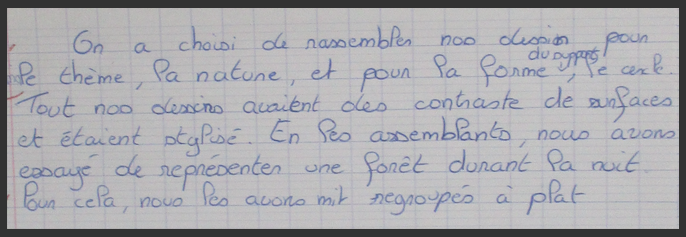 On a choisi de rassembler nos dessin pour
le thème, la nature, et pour la forme du support, le cercle.
Tout nos dessins avaient des contraste de surfaces
et étaient stylisé. En les assemblants, nous avons
essayé de représenter une forêt durant la nuit.
Pour cela, nous les avons mit regroupés à plat